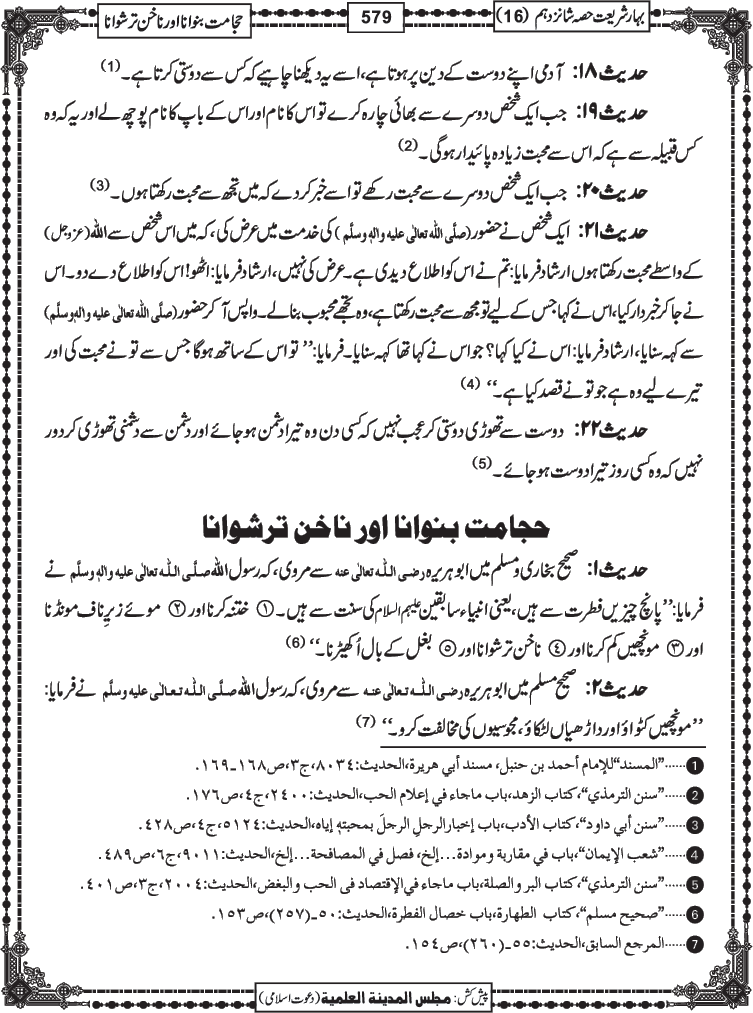 بہارِ شریعت حصہ شانزدہم (16)
579
حجامت بنوانا اور ناخن ترشوانا
حدیث ۱۸: آدمی اپنے دوست کے دین پر ہوتا ہے، اسے یہ دیکھنا چاہیے کہ کس سے دوستی کرتا ہے۔ (1)
حدیث ۱۹: جب ایک شخص دوسرے سے بھائی چارہ کرے تو اس کا نام اور اس کے باپ کا نام پوچھ لے اور یہ کہ وہ
کس قبیلہ سے ہے کہ اس سے محبت زیادہ پائیدار ہوگی۔ (2)
حدیث ۲۰: جب ایک شخص دوسرے سے محبت رکھے تو اسے خبر کردے کہ میں تجھ سے محبت رکھتا ہوں۔ (3)
حدیث ۲۱: ایک شخص نے حضور (صلَّی اللہ تعالٰی علیہ والہٖ وسلَّم) کی خدمت میں عرض کی، کہ میں اس شخص سے اللہ (عزوجل)
کے واسطے محبت رکھتا ہوں ارشاد فرمایا: تم نے اس کو اطلاع دیدی ہے۔ عرض کی نہیں، ارشاد فرمایا: اٹھو! اس کو اطلاع دے دو۔ اس
نے جا کر خبردار کیا، اس نے کہا جس کے لیے تو مجھ سے محبت رکھتا ہے، وہ تجھے محبوب بنالے۔ واپس آکر حضور (صلَّی اللہ تعالٰی علیہ والہٖ وسلَّم)
سے کہہ سنایا، ارشاد فرمایا: اس نے کیا کہا؟ جو اس نے کہا تھا کہہ سنایا۔ فرمایا: ’’تو اس کے ساتھ ہوگا جس سے تو نے محبت کی اور
تیرے لیے وہ ہے جو تو نے قصد کیا ہے۔‘‘ (4)
حدیث ۲۲: دوست سے تھوڑی دوستی کر عجب نہیں کہ کسی دن وہ تیرا دشمن ہوجائے اور دشمن سے دشمنی تھوڑی کر دور
نہیں کہ وہ کسی روز تیرا دوست ہوجائے۔ (5)
حجامت بنوانا اور ناخن ترشوانا
حدیث ۱: صحیح بخاری و مسلم میں ابوہریرہ رضی اللہ تعالٰی عنہ سے مروی، کہ رسول اللہ صلَّی اللہ تعالٰی علیہ والہٖ وسلَّم نے
فرمایا: ’’پانچ چیزیں فطرت سے ہیں، یعنی انبیاء سابقین علیہم السلام کی سنت سے ہیں۔ ① ختنہ کرنا اور ② موئے زیرِ ناف مونڈنا
اور ③ مونچھیں کم کرنا اور ④ ناخن ترشوانا اور ⑤ بغل کے بال اُکھیڑنا۔‘‘ (6)
حدیث ۲: صحیح مسلم میں ابوہریرہ رضی اللہ تعالٰی عنہ سے مروی، کہ رسول اللہ صلَّی اللہ تعالٰی علیہ والہٖ وسلَّم نے فرمایا:
’’مونچھیں کٹواؤ اور داڑھیاں لٹکاؤ، مجوسیوں کی مخالفت کرو۔‘‘ (7)
❶......"المسند" للإمام أحمد بن حنبل، مسند أبي هريرة، الحديث: ٨٠٣٤، ج٣، ص١٦٨ـ١٦٩.
❷......"سنن الترمذي"، كتاب الزهد، باب ماجاء في إعلام الحب، الحديث: ٢٤٠٠، ج٤، ص١٧٦.
❸......"سنن أبي داود"، كتاب الأدب، باب إخبار الرجلِ الرجلَ بمحبتهٖ إياه، الحديث: ٥١٢٤، ج٤، ص٤٢٨.
❹......"شعب الإيمان"، باب في مقاربة وموادة...إلخ، فصل في المصافحة...إلخ، الحديث: ٩٠١١، ج٦، ص٤٨٩.
❺......"سنن الترمذي"، كتاب البر والصلة، باب ماجاء في الإقتصاد فى الحب والبغض، الحديث: ٢٠٠٤، ج٣، ص٤٠١.
❻......"صحيح مسلم"، كتاب الطهارة، باب خصال الفطرة، الحديث: ٥٠ـ(٢٥٧)، ص١٥٣.
❼......المرجع السابق، الحديث: ٥٥ـ(٢٦٠)، ص١٥٤.
پیش کش: مجلس المدينة العلمية (دعوتِ اسلامی)